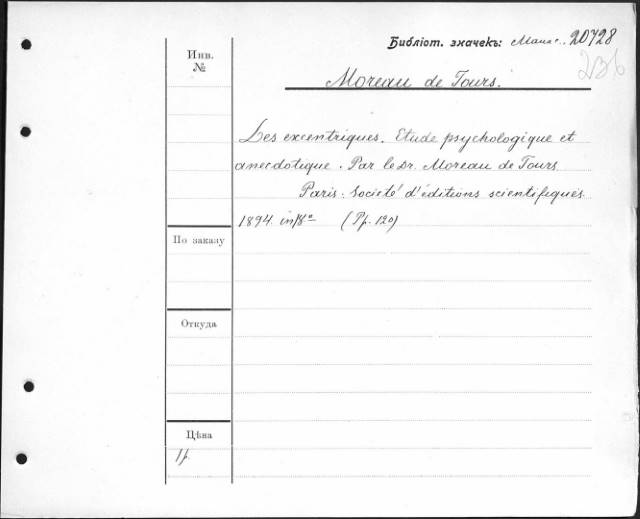 Библіот. значекъ: 20728
236
Инв.
№
Moreau de Tours.
Les excentriques. Etude psychologique et
anecdotique. Par le Dr. Moreau de Tours
Paris. Société d'éditions scientifiques.
1894. in/8º (Pp. 120)
По заказу
Откуда
Цѣна
1р.